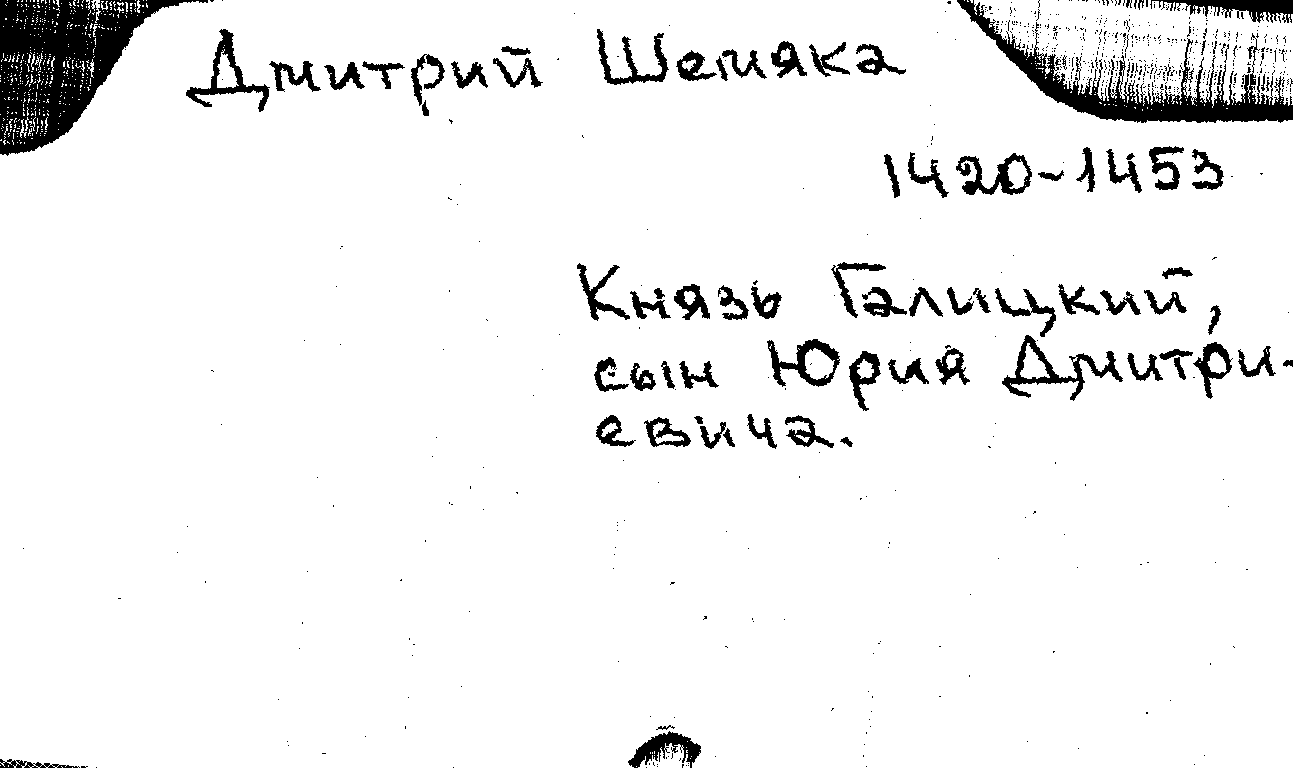 Дмитрий Шемяка
1420-1453
Князь Галицкий,
сын Юрия Дмитри-
евича.